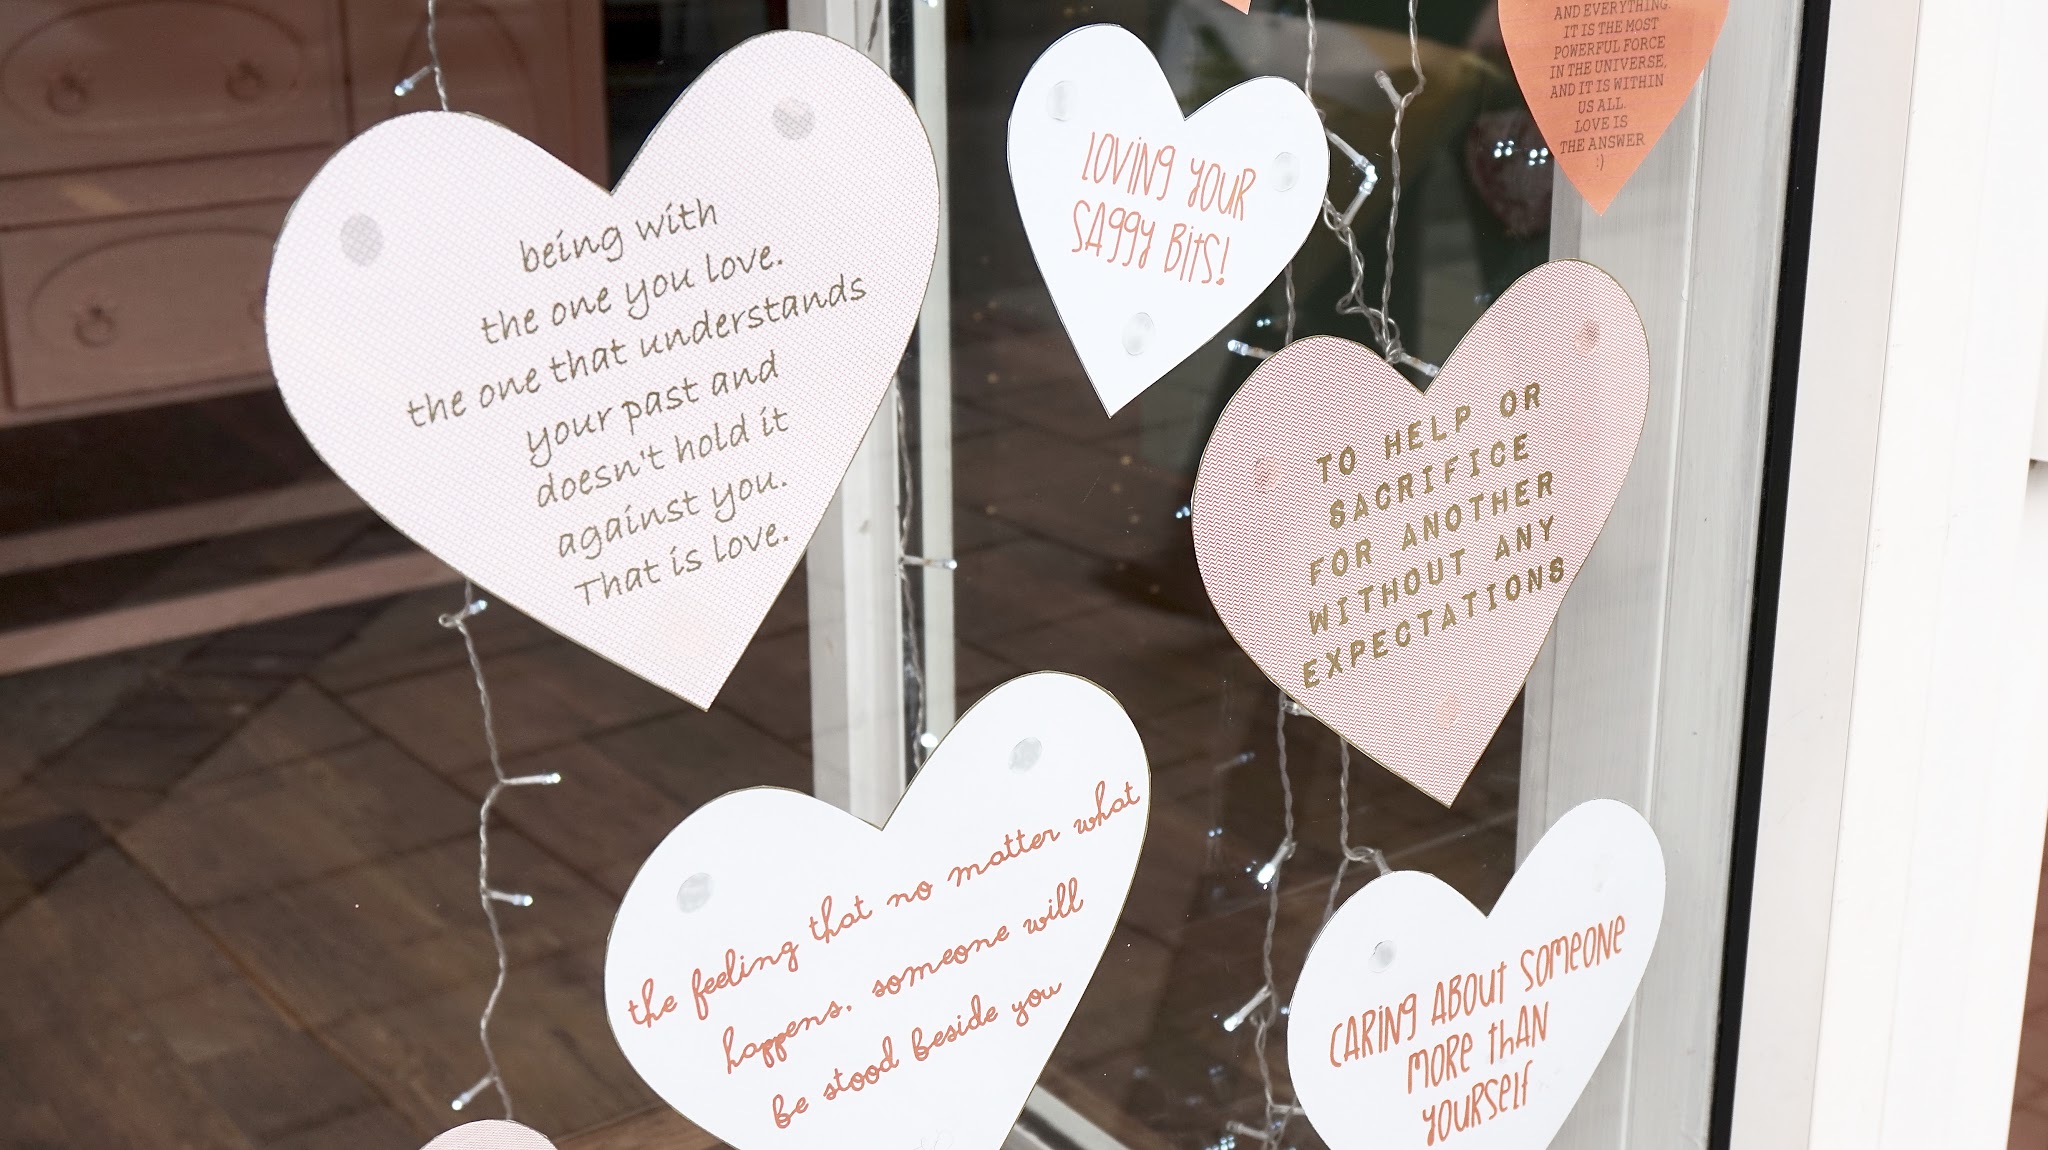 being with
the one you love.
the one that understands
your past and
doesn't hold it
against you.
That is love.
LOVING YOUR
SAGGY BITS!
AND EVERYTHING.
IT IS THE MOST
POWERFUL FORCE
IN THE UNIVERSE,
AND IT IS WITHIN
US ALL.
LOVE IS
THE ANSWER
:)
TO HELP OR
SACRIFICE
FOR ANOTHER
WITHOUT ANY
EXPECTATIONS
the feeling that no matter what
happens, someone will
be stood beside you
CARING ABOUT SOMEONE
MORE THAN
YOURSELF